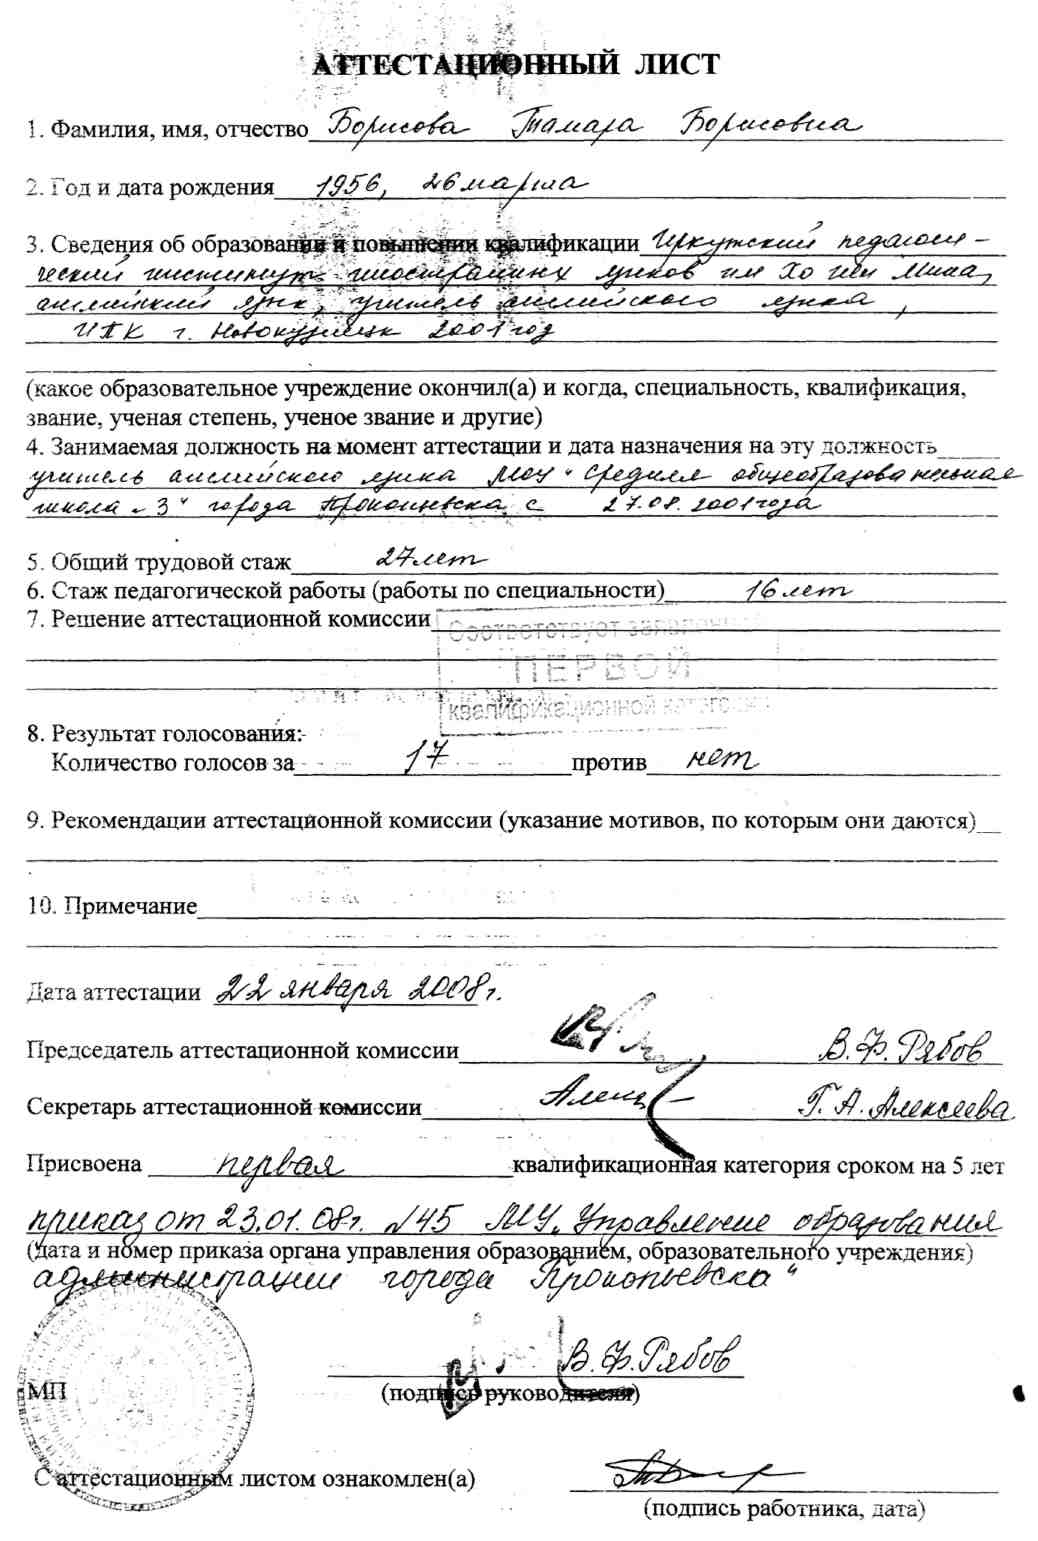 АТТЕСТАЦИОННЫЙ ЛИСТ
1. Фамилия, имя, отчество Борисова Тамара Борисовна
2. Год и дата рождения 1956, 26 марта
3. Сведения об образовании и повышении квалификации Иркутский педагоги-
ческий институт иностранных языков им Хо Ши Мина,
английский язык, учитель английского языка,
ИПК г. Новокузнецк 2001 год
(какое образовательное учреждение окончил(а) и когда, специальность, квалификация,
звание, ученая степень, ученое звание и другие)
4. Занимаемая должность на момент аттестации и дата назначения на эту должность
учитель английского языка МОУ "Средняя общеобразовательная
школа № 3" города Прокопьевска с 27.08.2001 года
5. Общий трудовой стаж 27 лет
6. Стаж педагогической работы (работы по специальности) 16 лет
7. Решение аттестационной комиссии Соответствует заявленной
ПЕРВОЙ
квалификационной категории
8. Результат голосования:
Количество голосов за 17 против нет
9. Рекомендации аттестационной комиссии (указание мотивов, по которым они даются)
10. Примечание
Дата аттестации 22 января 2008 г.
Председатель аттестационной комиссии В.Ф. Рябов
Секретарь аттестационной комиссии Г.А. Алексеева
Присвоена первая квалификационная категория сроком на 5 лет
приказ от 23.01.08г. №45 МУ "Управление образования
(дата и номер приказа органа управления образованием, образовательного учреждения)
администрации города Прокопьевска"
В.Ф. Рябов
МП (подпись руководителя)
С аттестационным листом ознакомлен(а)
(подпись работника, дата)